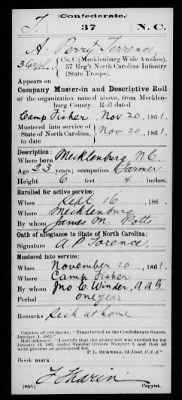 (Confederate.)
T. 37 N. C.
A. Perry Torrence
Co. C (Mecklenburg Wide Awakes),
37 Reg't North Carolina Infantry
(State Troops).
Appears on
Company Muster-in and Descriptive Roll
of the organization named above, from Mecklen-
burg County. Roll dated
Camp Fisher Nov 20, 1861.
Mustered into service of
State of North Carolina,
to date
Nov 20, 1861.
Description:
Where born Mecklenburg N.C.
Age 23 years; occupation Farmer
Height feet inches.
Enrolled for active service:
When Sept 16, 186 .
Where Mecklenburg
By whom James M. Potts
Oath of allegiance to State of North Carolina:
Signature A P Torence
Mustered into service:
When November 20, 1861.
Where Camp Fisher
By whom Jno C. Winder, A A G
Period one year
Remarks: Sick at home
P. L. BURWELL, of Lieut. C. S. A."
Book mark:
(635) Copyist.